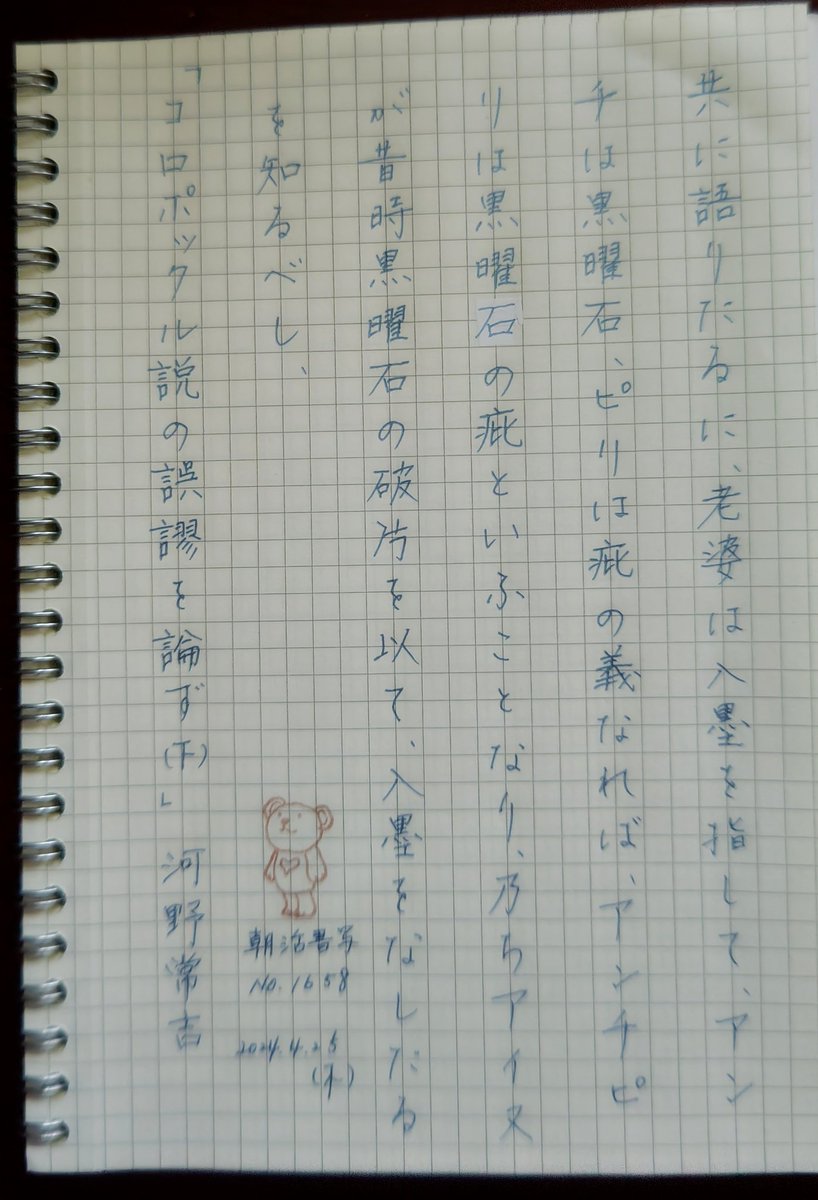 共に語りたるに、老婆は入墨を指して、アン
チは黒曜石、ピリは疵の義なれば、アンチピ
リは黒曜石の疵といふことなり、乃ちアイヌ
が昔時黒曜石の破片を以て、入墨をなしたる
を知るべし、
「コロポックル説の誤謬を論ず(下)」 河野常吉
朝活書写
No.1658
2024.4.25
(木)